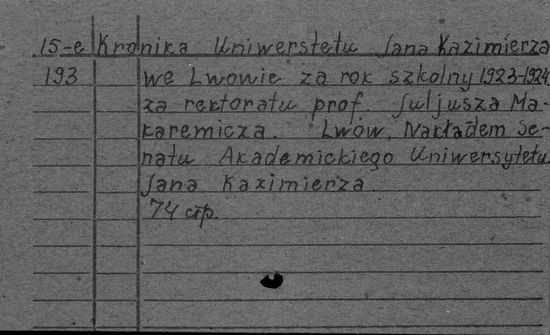 15-e Kronika Uniwerstetu Jana Kazimierza
193 we Lwowie za rok szkolny 1923-1924
za rektoratu prof. Juljusza Ma-
karemicza. Lwów, Nakładem Se-
natu Akademickiego Uniwersytetu
Jana Kazimierza.
74 стр.